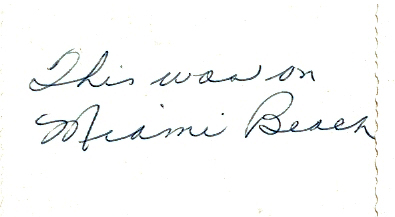 This was on
Miami Beach